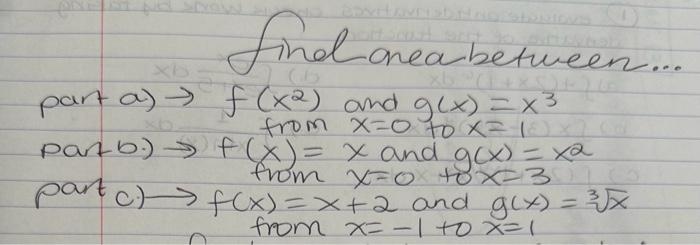 find area between...
part a.) → f(x2) and g(x) = x3
from x=0 to x=1
part b.) → f(x) = x and g(x) = x2
from x=0 to x=3
part c.) → f(x) = x+2 and g(x) = ∛x
from x=-1 to x=1